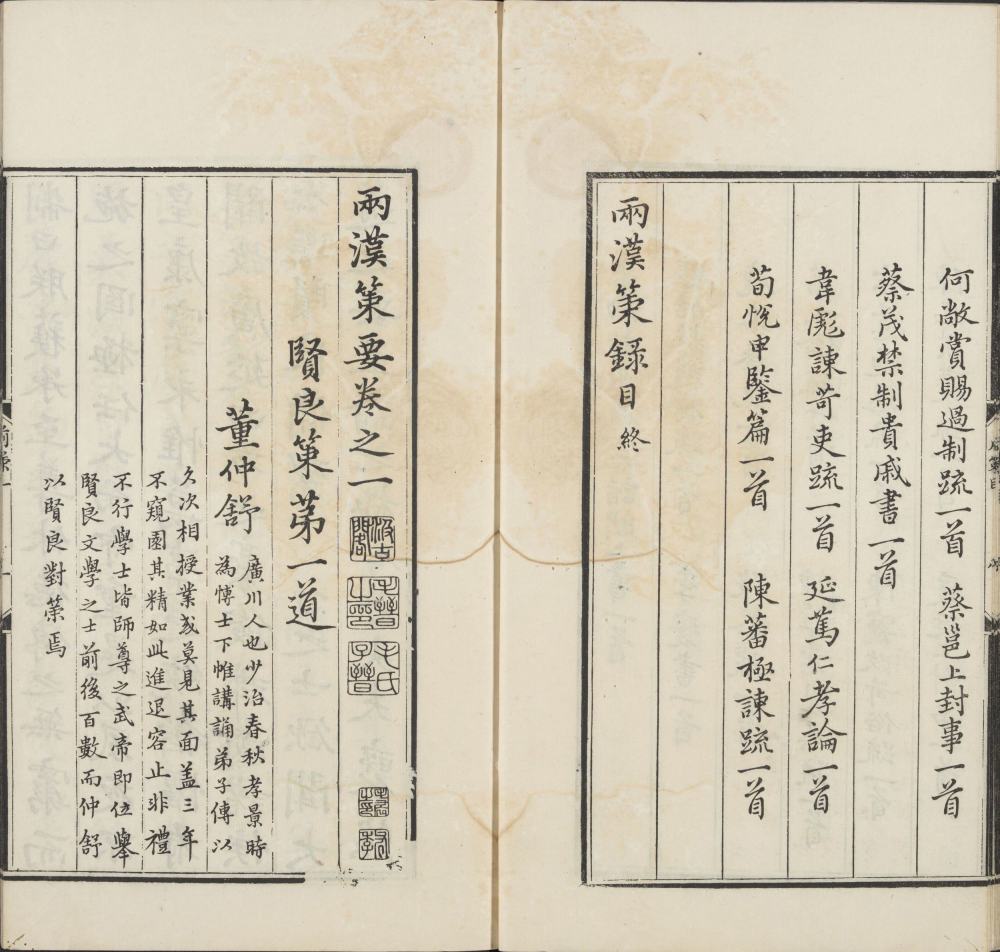 何敞賞賜過制疏一首　蔡邕上封事一首
蔡茂禁制貴戚書一首
韋彪諫苛吏疏一首　延篤仁孝論一首
荀悅申鑒篇一首　陳蕃極諫疏一首
兩漢策錄目終
兩漢策要卷之一
汲古閣
毛晉之印
毛氏子晉
賢良策苐一道
董仲舒
廣川人也少治春秋孝景時
為博士下帷講誦弟子傳以
久次相授業或莫見其面盖三年
不窺園其精如此進退容止非禮
不行學士皆師尊之武帝即位舉
賢良文學之士前後百數而仲舒
以賢良對策焉